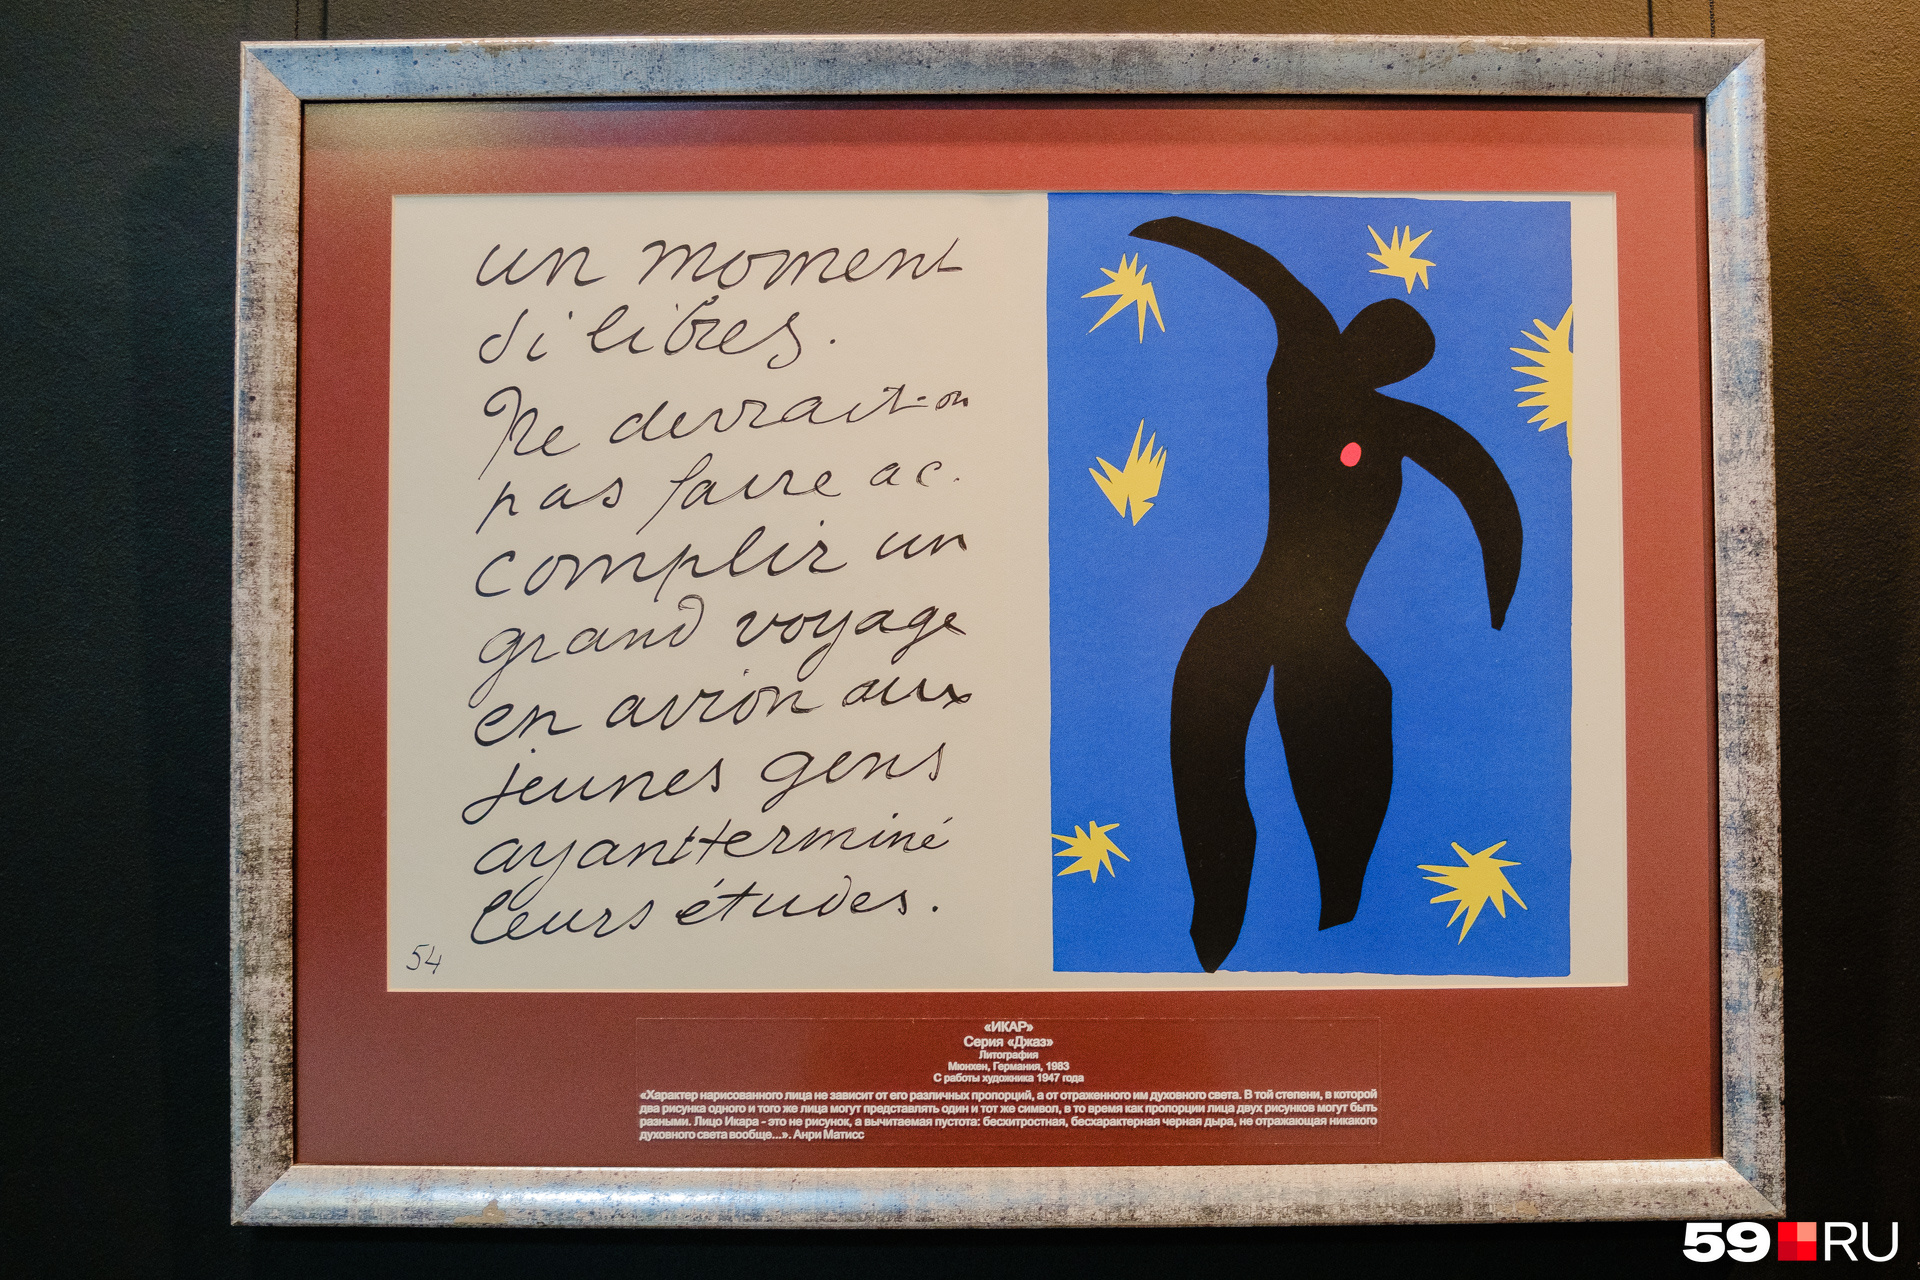 un moment
si libres.
Ne devrait-on
pas faire ac-
complir un
grand voyage
en avion aux
jeunes gens
ayant terminé
leurs études.
54
«ИКАР»
Серия «Джаз»
Литография
Мюнхен, Германия, 1983
С работы художника 1947 года
«Характер нарисованного лица не зависит от его различных пропорций, а от отраженного им духовного света. В той степени, в которой
два рисунка одного и того же лица могут представлять один и тот же символ, в то время как пропорции лица двух рисунков могут быть
разными. Лицо Икара - это не рисунок, а вычитаемая пустота: бесхитростная, бесхарактерная черная дыра, не отражающая никакого
духовного света вообще...». Анри Матисс
59 RU